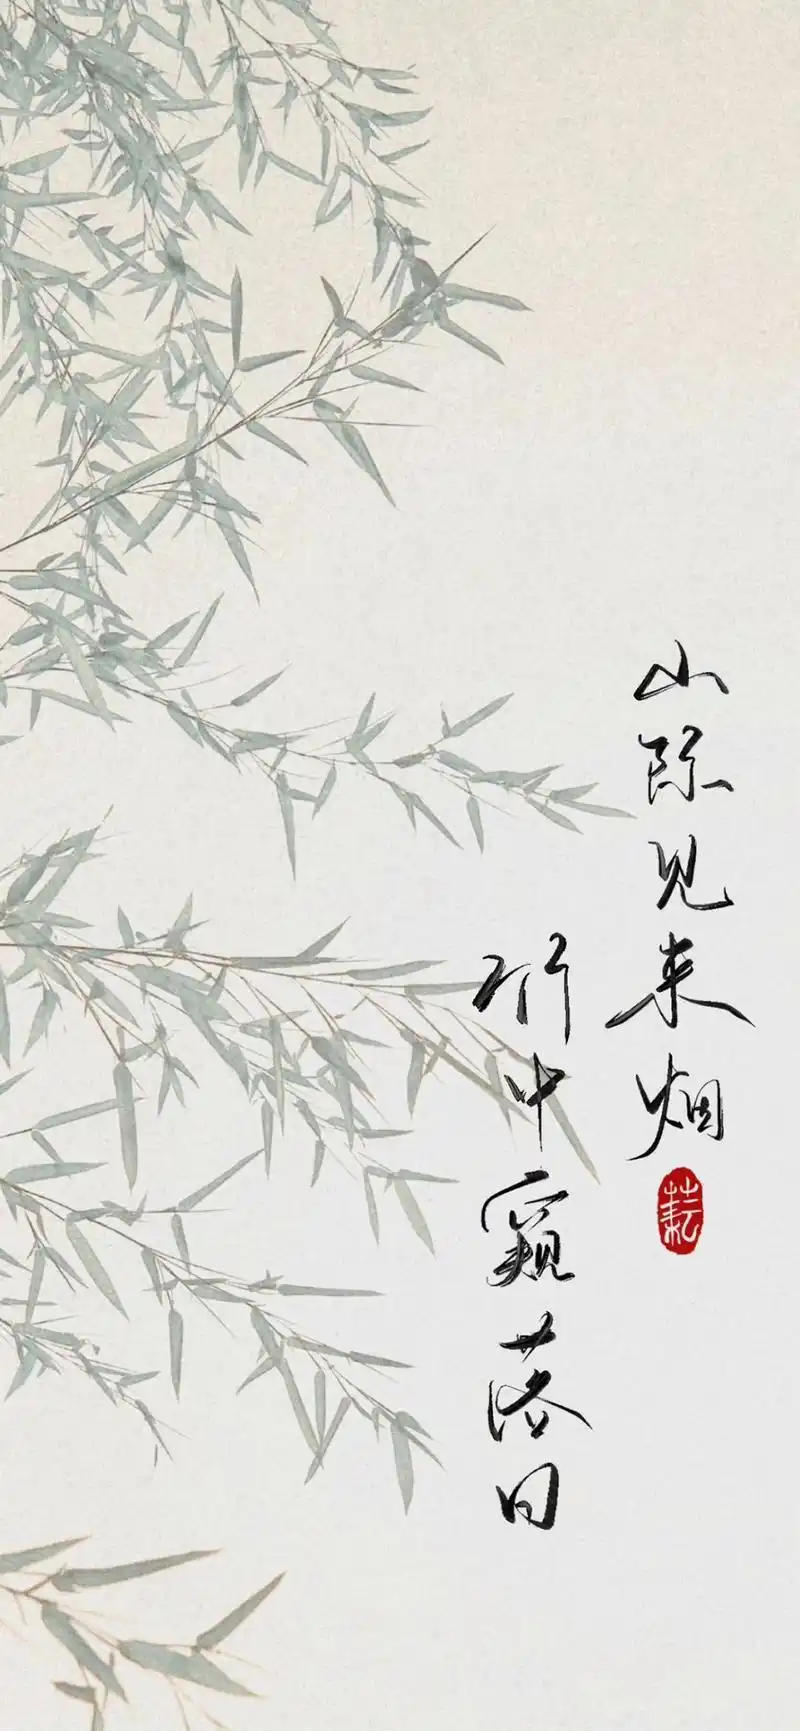 山际见来烟
竹中窥落日
耘